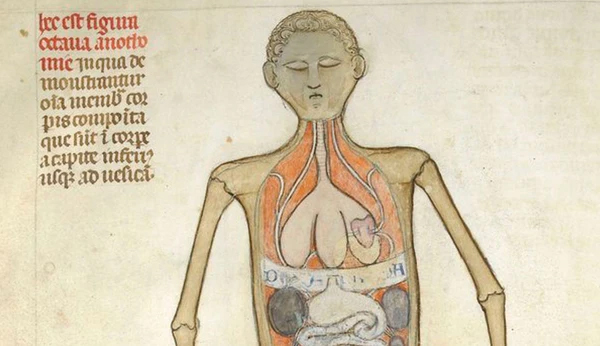 hec est figura
octaua anotho
mie in qua de
monstrantur
oīa memb̄ cor
pis compoīta
que sūt ī corpe
a capite inferiꝰ
usqꝫ ad uesicā